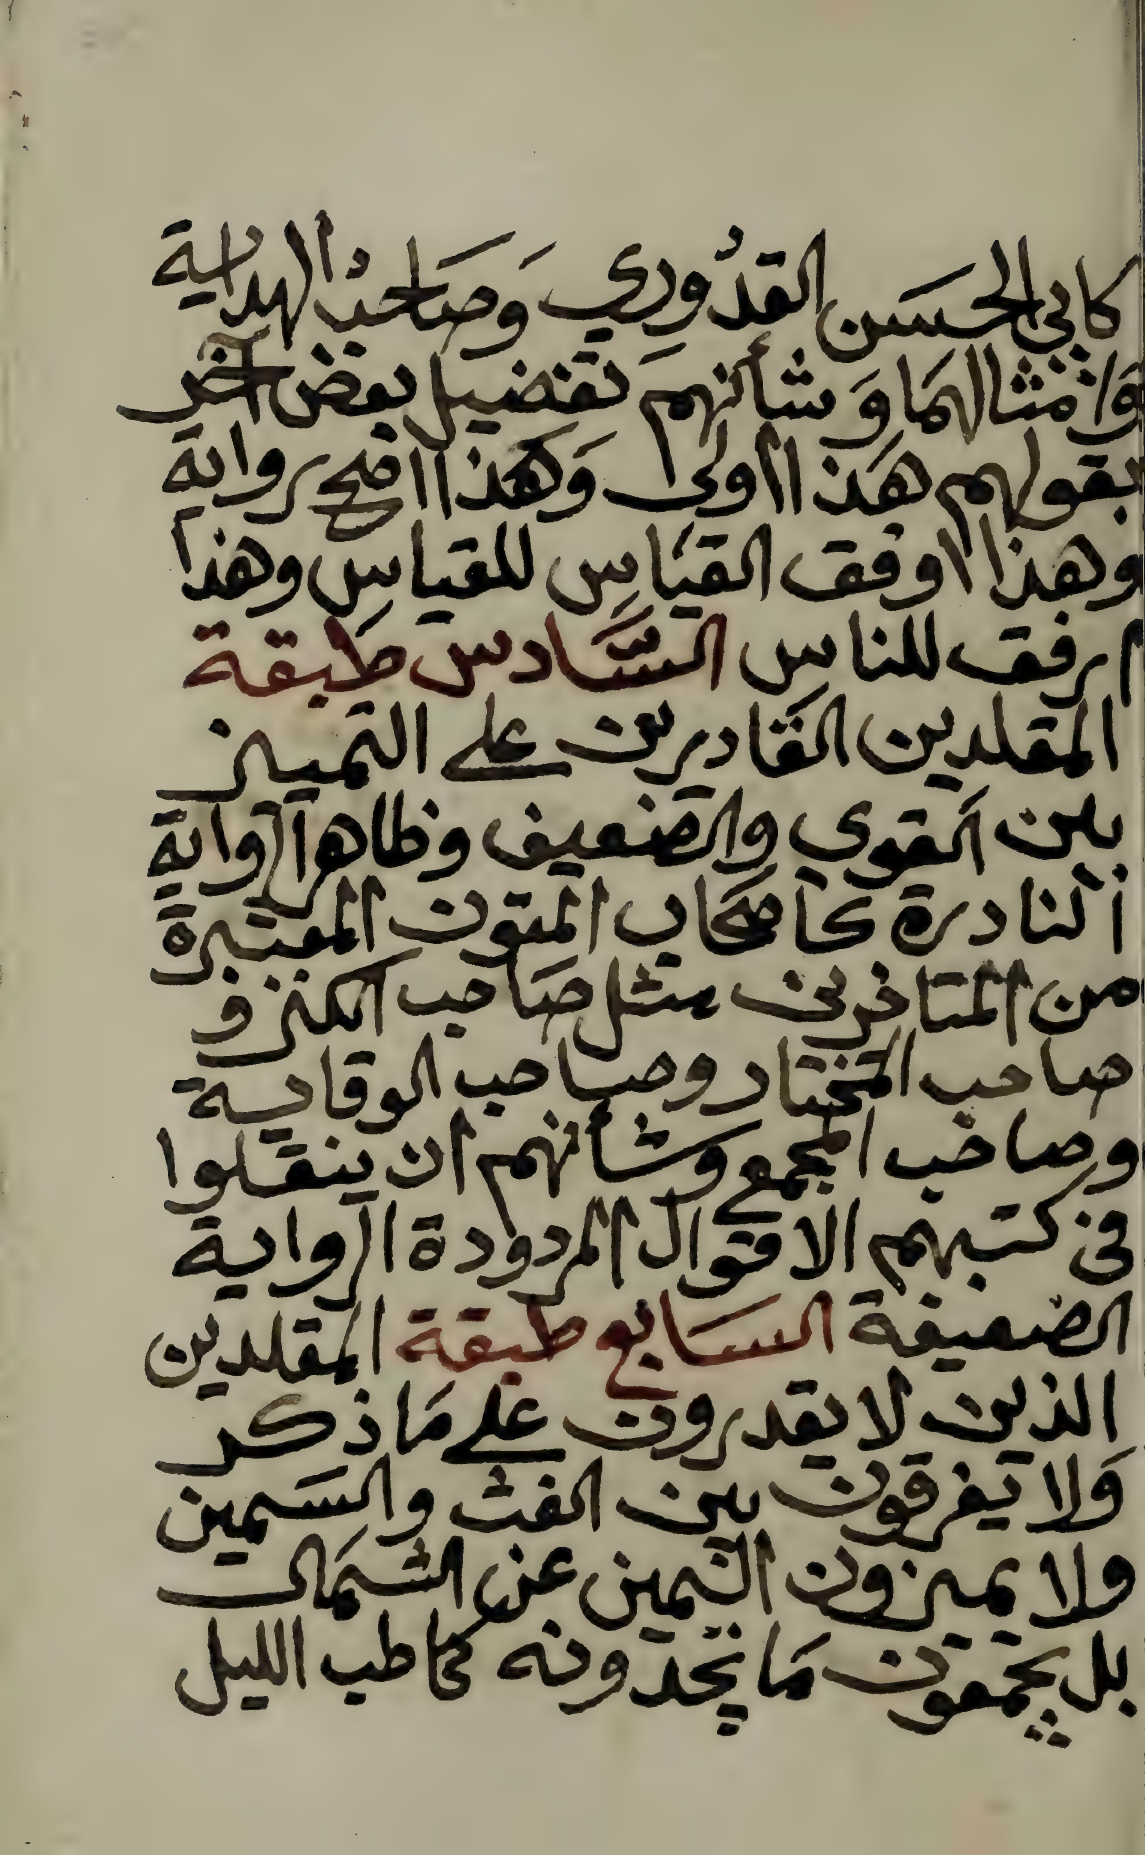 كابي الحسن القدوري وصاحب الهداية
وامثالهما وشأنهم تفضيل بعض آخر
بقولهم هذا اولى وهذا اصح رواية
وهذا اوفق القياس للقياس وهذا
ارفق للناس السادس طبقة
المقلدين القادرين على التمييز
بين القوي والضعيف وظاهر الرواية
النادرة كاصحاب المتون المعتبرة
من المتاخرين مثل صاحب الكنز و
صاحب المختار وصاحب الوقاية
وصاحب المجمع وشأنهم ان ينقلوا
في كتبهم الاقوال المردودة الرواية
الضعيفة السابع طبقة المقلدين
الذين لا يقدرون على ما ذكر
ولا يفرقون بين الغث والسمين
ولا يميزون اليمين عن الشمال
بل يجمعون ما يجدونه كحاطب الليل